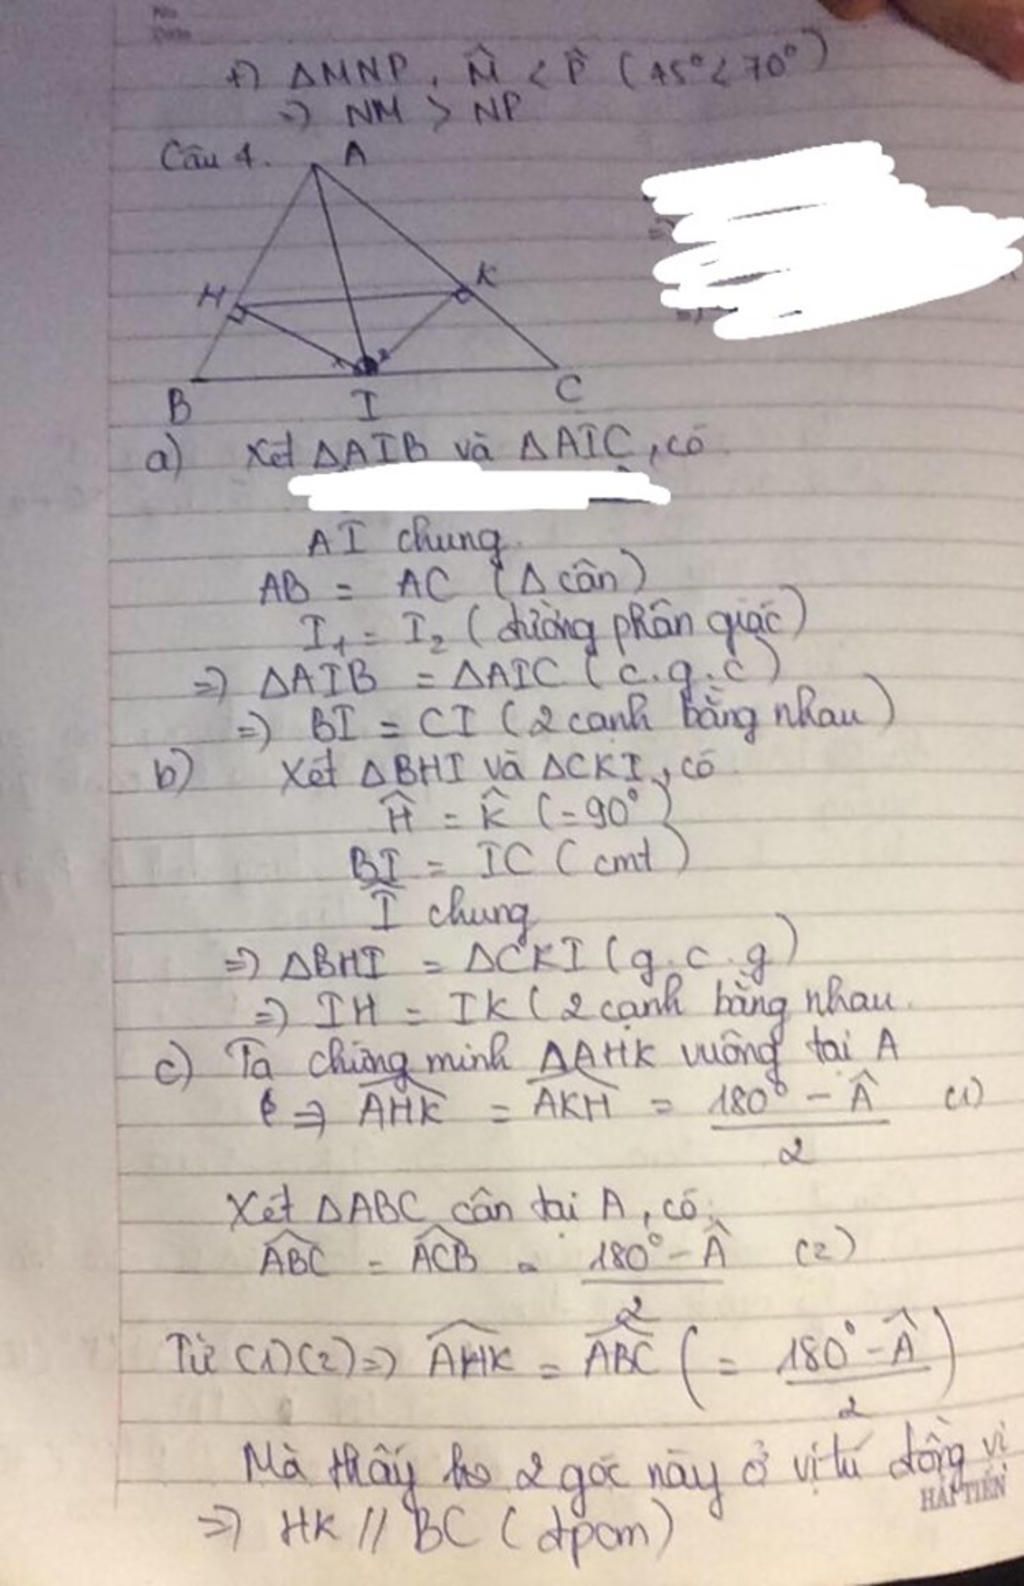 +) ΔMNP, M̂ < P̂ (45° < 70°)
=> NM > NP
Câu 4.
A
H
K
B
I
C
a) Xét ΔAIB và ΔAIC, có
AI chung.
AB = AC (Δ cân)
I₁ = I₂ (đường phân giác)
=> ΔAIB = ΔAIC (c.g.c)
=> BI = CI (2 cạnh bằng nhau)
b) Xét ΔBHI và ΔCKI, có
Ĥ = K̂ (=90°)
BI = IC (cmt)
Î chung
=> ΔBHI = ΔCKI (g.c.g)
=> IH = IK (2 cạnh bằng nhau.
c) Ta chứng minh ΔAHK vuông tại A
=> \widehat{AHK} = \widehat{AKH} = \frac{180° - Â}{2} (1)
Xét ΔABC cân tại A, có
\widehat{ABC} = \widehat{ACB} = \frac{180° - Â}{2} (2)
Từ (1)(2) => \widehat{AHK} = \widehat{ABC} (= \frac{180° - Â}{2})
Mà thấy 2 góc này ở vị trí đồng vị
HẢI TIẾN
=> HK // BC (đpcm)